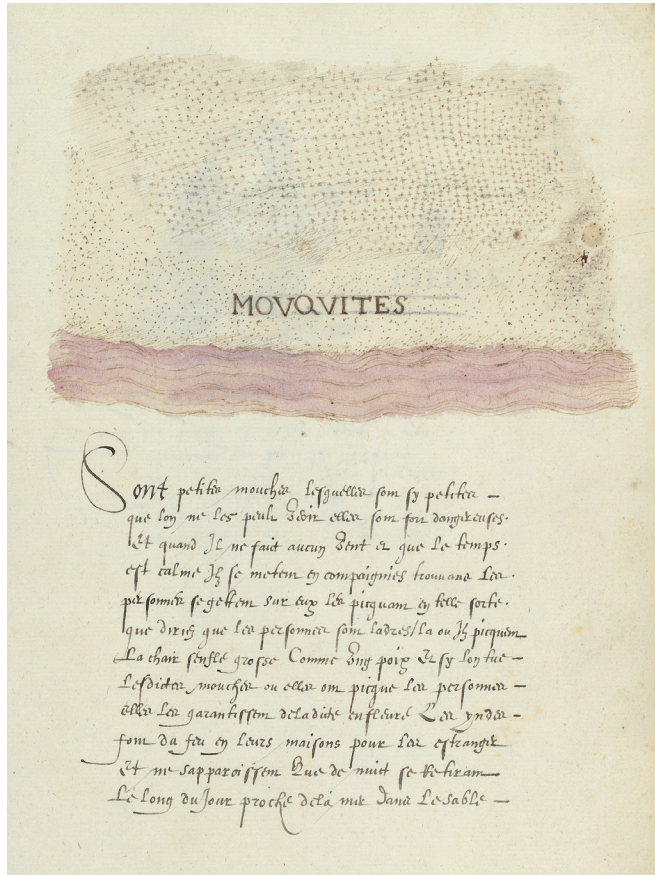 MOVQVITES
Sont petites mouches lesquelles sont sy petites —
que lon ne les peult veoir elles sont fort dangereuses.
Et quand Il ne fait aucun vent et que le temps.
est calme Ilz se metent en compaignies trouvans les.
personnes se gettent sur eux les picquant en telle sorte.
que diriez que les personnes sont ladres/la ou Ilz picquent
La chair senfle grosse Comme vng poix Et sy lon tue —
Lesdictes mouches ou elles ont picque les personnes —
elles les garantissent deladite enfleure Les yndes —
font du feu en leurs maisons pour les estranger
Et ne sapparoissent Que de nuit se Retirant
Le long du Jour proche dela mer dans Lesable —